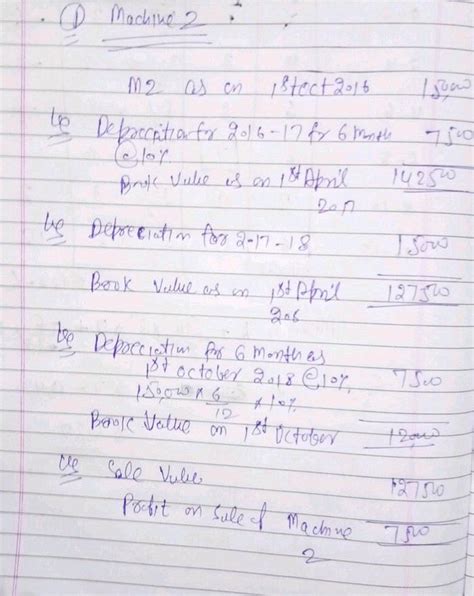 ① Machine 2
M2 as on 1st oct 2016 150,000
Le Depreciation for 2016-17 for 6 month 7500
@10%
Book Value as on 1st April 142500
2017
Le Depreciation for 2-17-18 15000
Book Value as on 1st April 127500
Le Depreciation for 6 month as
1st october 2018 @10% 7500
150,000 × 6/12 × 10%
Book Value on 1st October 120,000
Le Sale Value 127500
Profit on Sale of Machine 7500
2